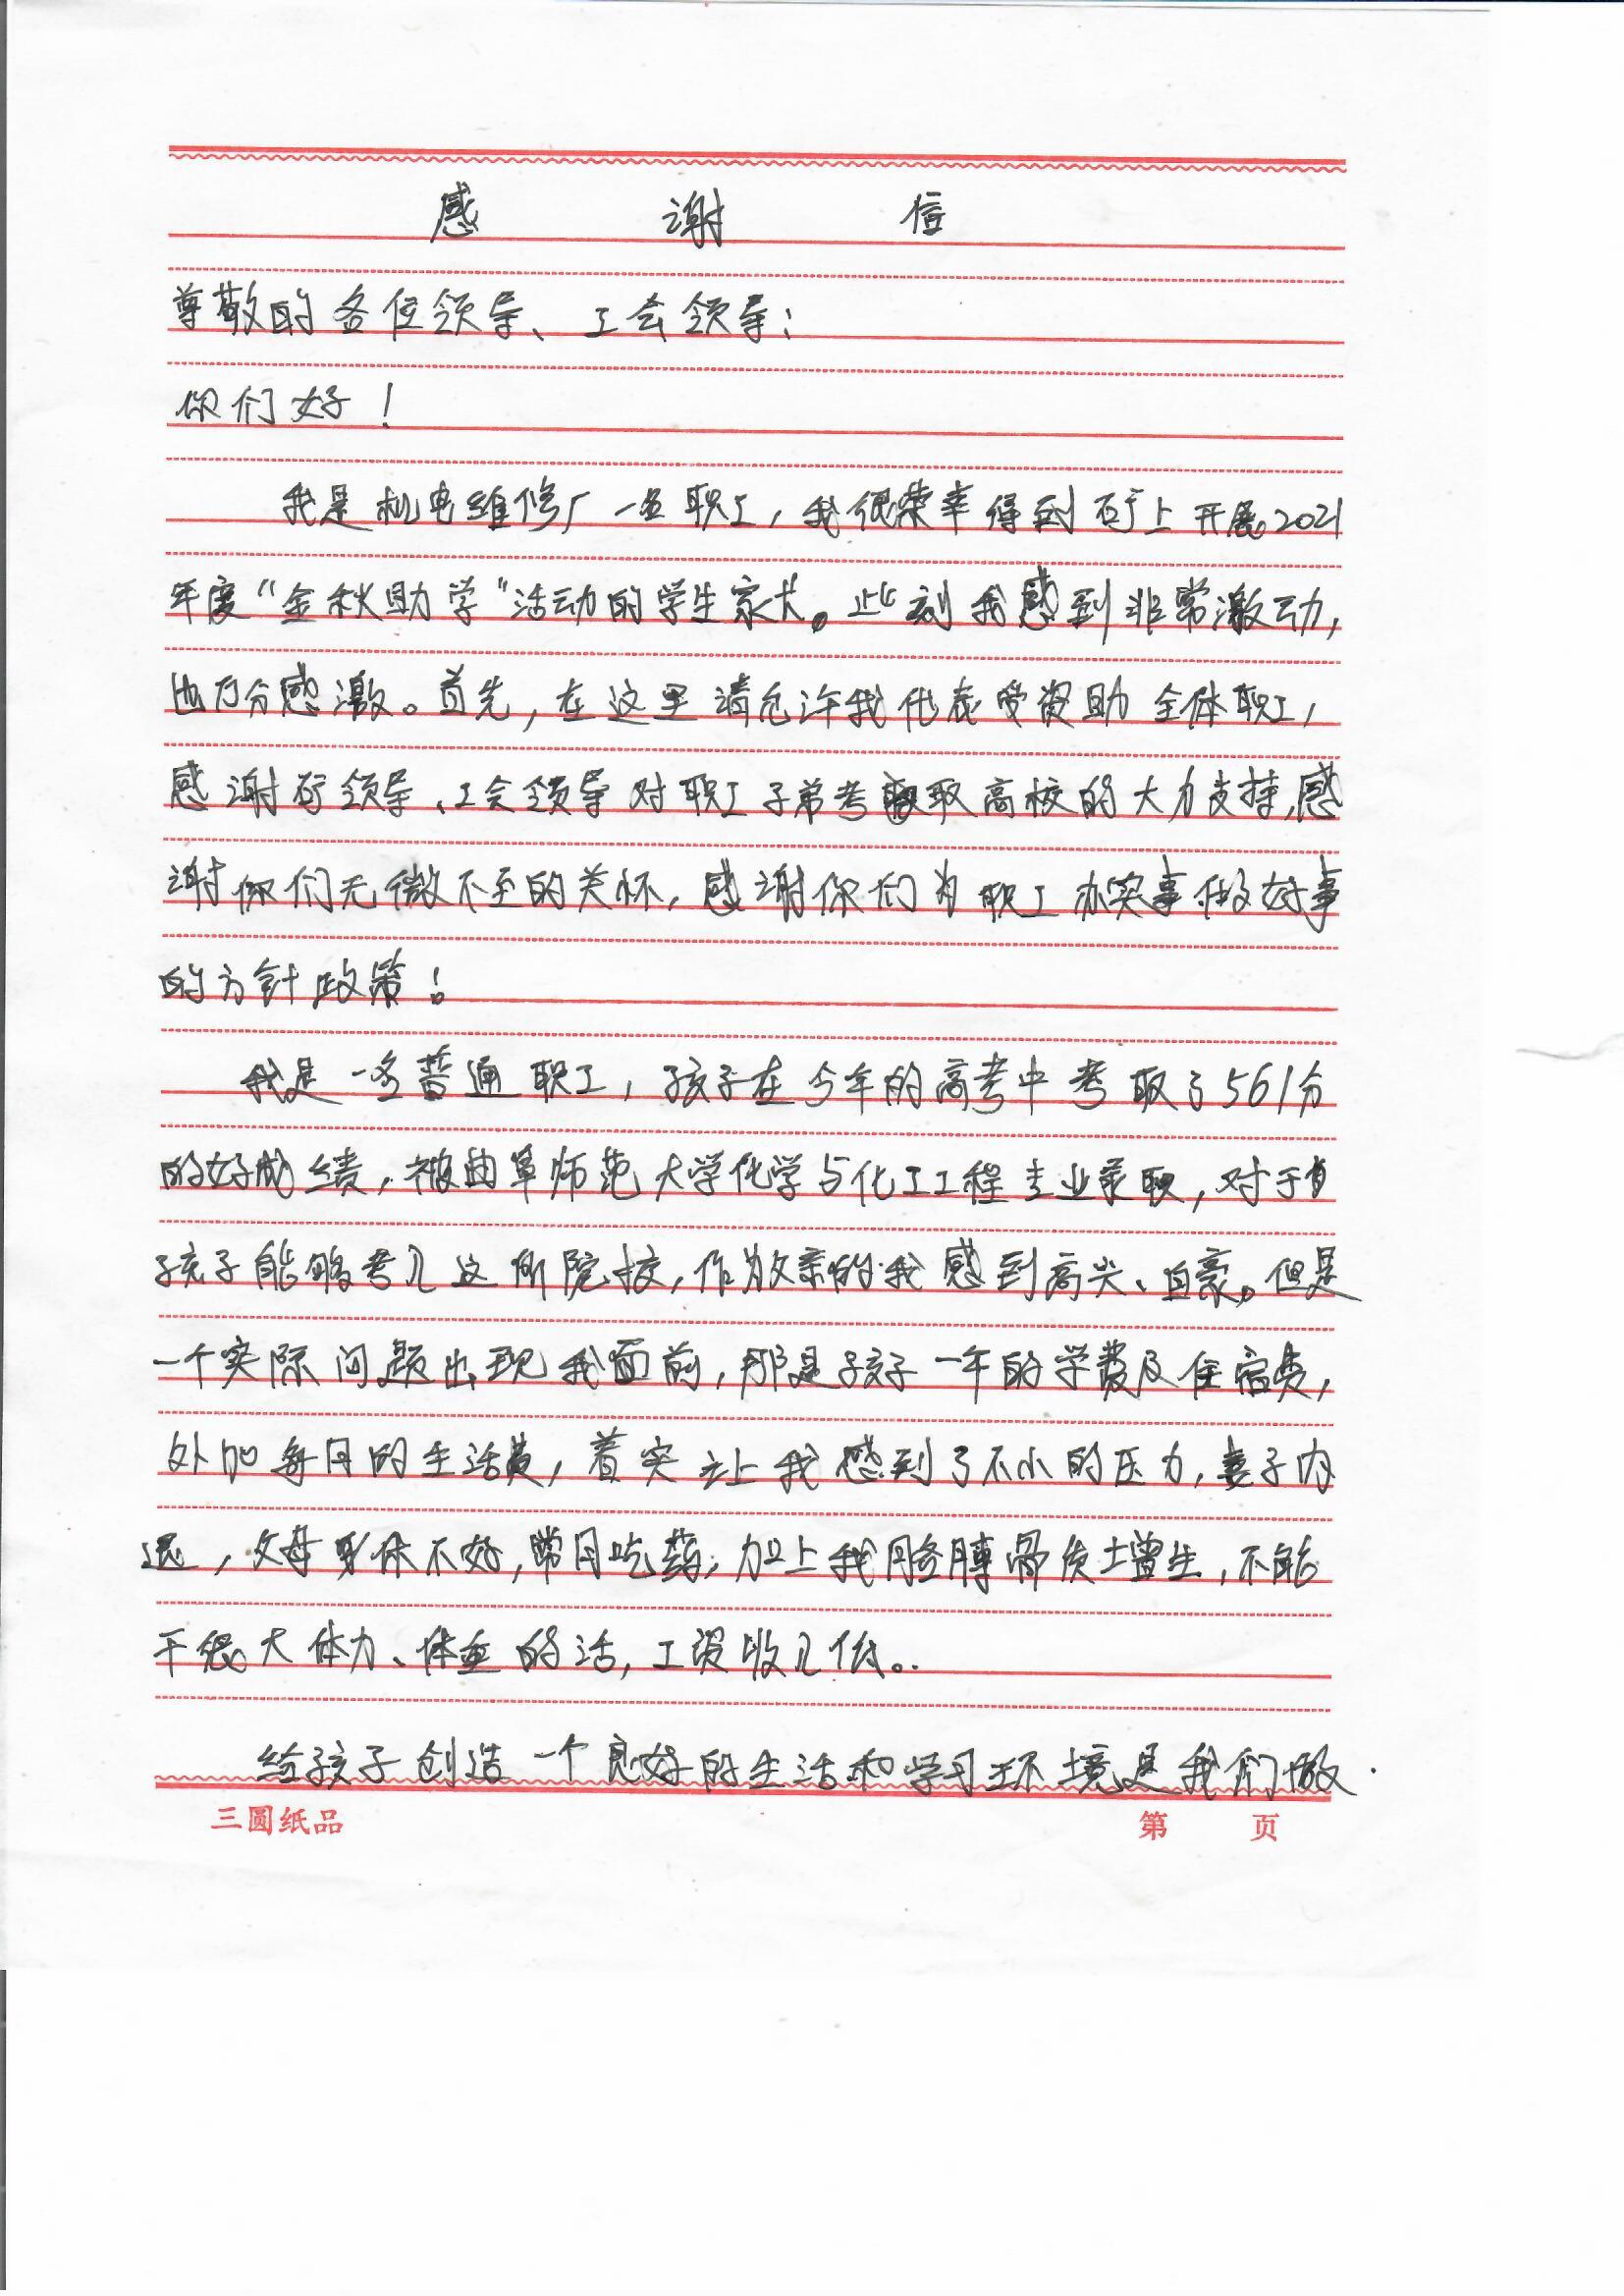 感谢信
尊敬的各位领导、工会领导：
你们好！
我是机电维修厂一名职工，我很荣幸得到矿上开展2021
年度“金秋助学”活动的学生家长。此刻我感到非常激动，
也万分感激。首先，在这里请允许我代表受资助全体职工，
感谢矿领导、工会领导对职工子弟考取高校的大力支持，感
谢你们无微不至的关怀，感谢你们为职工办实事做好事
的方针政策！
我是一名普通职工，孩子在今年的高考中考取了561分
的好成绩，被曲阜师范大学化学与化工工程专业录取，对于自
孩子能够考入这所院校，作为父亲的我感到高兴、自豪。但是
一个实际问题出现我面前，那是孩子一年的学费及住宿费，
外加每月的生活费，着实让我感到了不小的压力，妻子内
退，父母身体不好，常月吃药，加上我胳膊骨质增生，不能
干很大体力、体重的活，工资收入低。
给孩子创造一个良好的生活和学习环境是我们做
三圆纸品
第 页